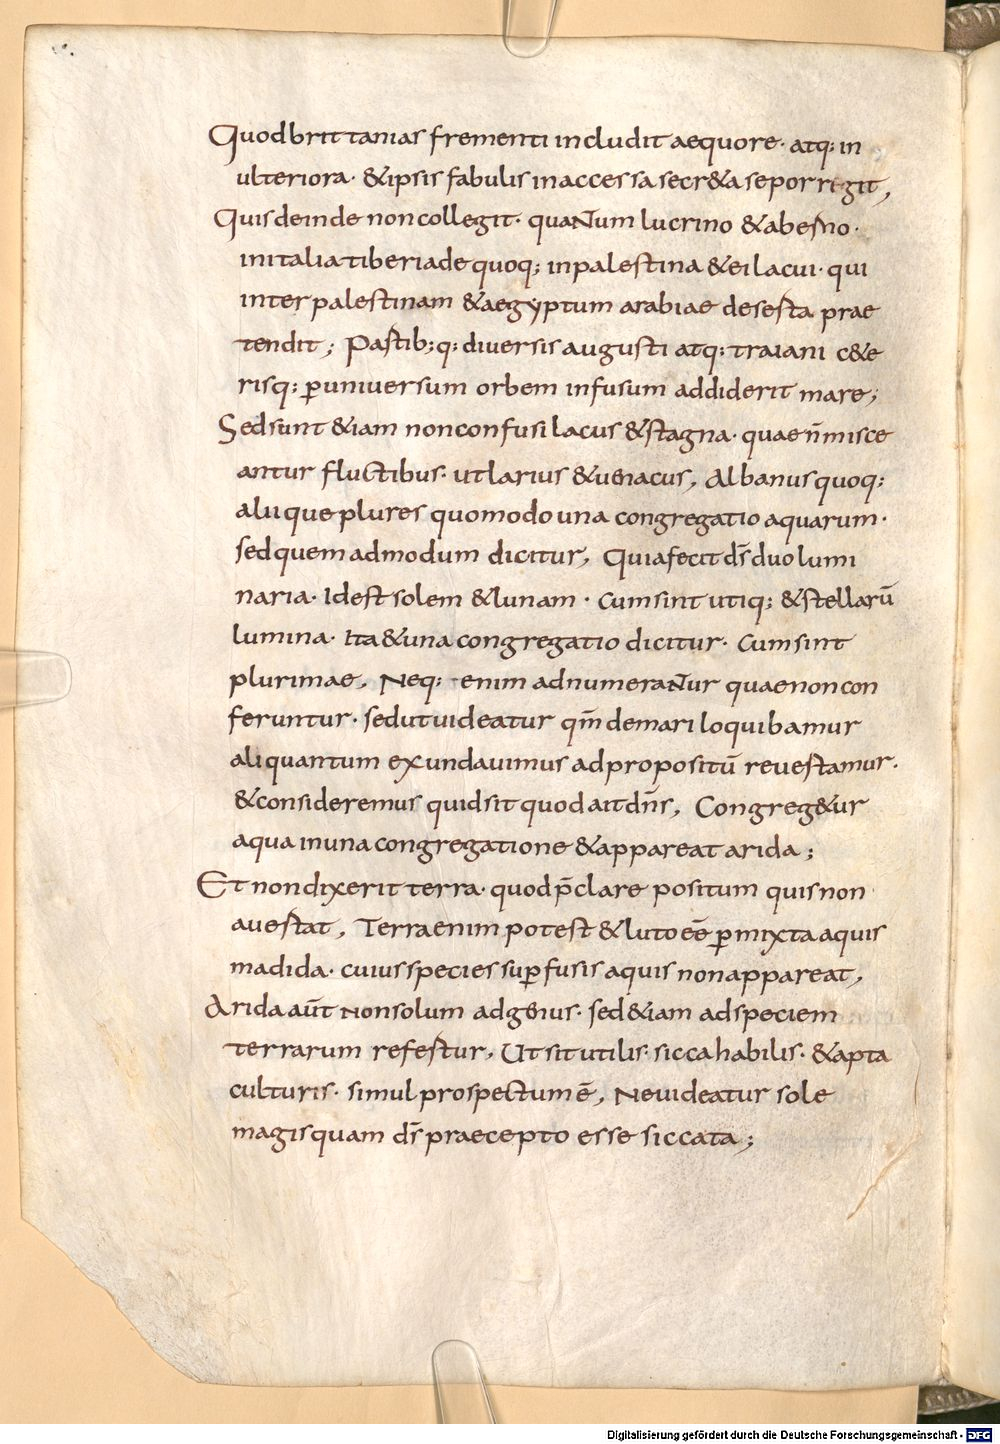 Quod brittanias frementi includit aequore· atq; in
ulteriora· & ipsis fabulis inaccessa secr&a se porrigit,
Quis deinde non collegit· quantum lucrino & aberno·
in italia tiberiade quoq; in palestina & ei lacui· qui
inter palestinam & aegyptum arabiae deserta prae
tendit; Partib;q; diversis augusti atq; traiani c&e
risq; ꝑ universum orbem infusum addiderit mare;
Sed sunt &iam non confusi lacus & stagna· quae n̄ misce
antur fluctibus· ut larius & uenacus, Albanus quoq;
alii que plures quomodo una congregatio aquarum·
sed quem admodum dicitur, Quia fecit d̄s duo lumi
naria· Id est solem & lunam· Cum sint utiq; & stellarū
lumina· Ita & una congregatio dicitur· Cum sint
plurimae, Neq; enim adnumerantur quae non con
feruntur· sed ut uideatur qm̄ de mari loquibamur
aliquantum exundavimus ad propositū revertamur·
& consideremus quid sit quod ait dn̄s, Congreg&ur
aqua in una congregatione & appareat arida;
Et non dixerit terra· quod p̄clare positum quis non
auertat, Terra enim potest & luto eē̄ ꝑmixta aquis
madida· cuius species suꝑfusis aquis non appareat,
Arida aūt non solum ad genus· sed &iam ad speciem
terrarum refertur, Ut sit utilis· sicca habilis· & apta
culturis· simul prospectum ē, Ne uideatur sole
magis quam d̄s praecepto esse siccata;
Digitalisierung gefördert durch die Deutsche Forschungsgemeinschaft - DFG